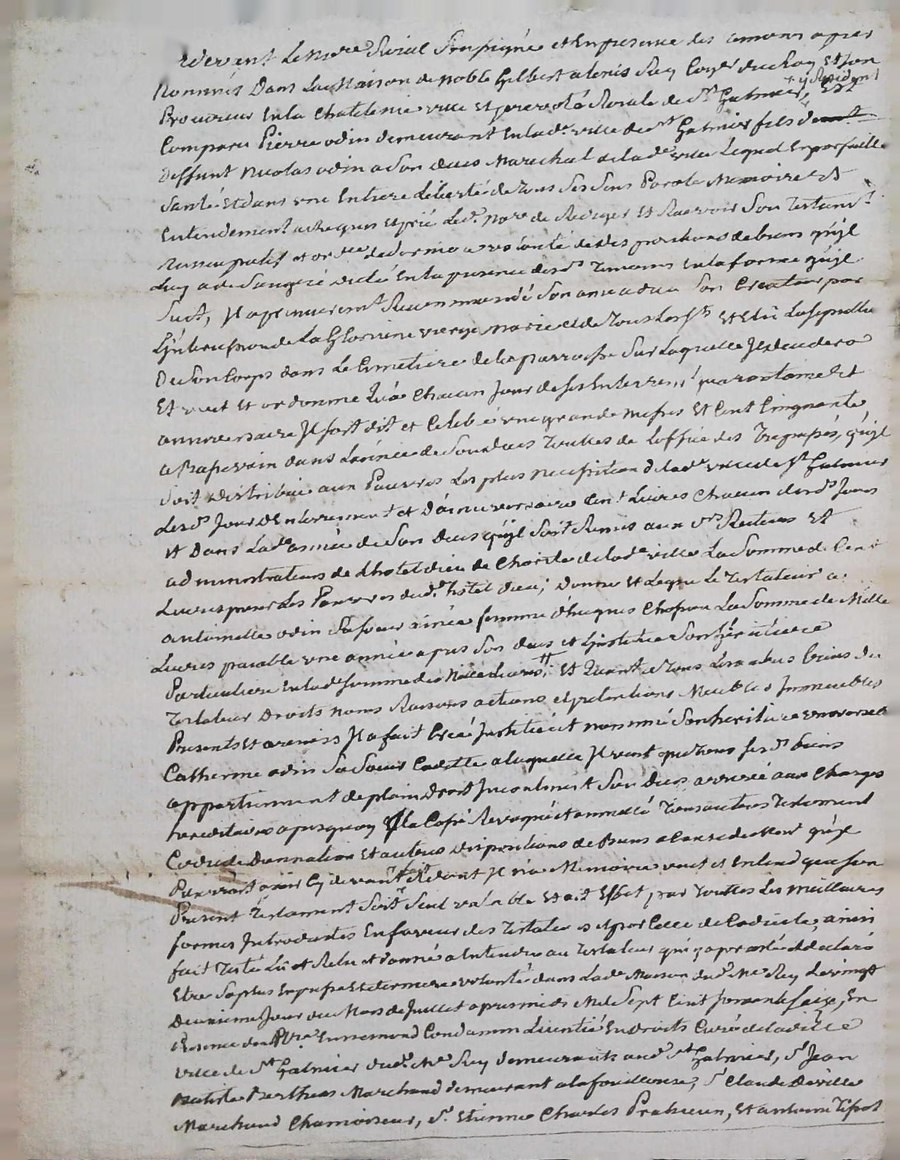 devant le no.re Roial Soussigné et En presence des temoins apres
Nommés Dans La Maison de noble Gilbert alexis Rey Con.er du Roy Et son
+ y Resident
Procureur En la Chatelenie ville Et prevoté Roiale de S.t Galmier, Est
Comparu Pierre odin demeurant En lad.e ville de S.t Galmier fils de
Deffunt Nicolas odin a Son deces Marechal de lad.e ville Lequel En parfaitte
Santé Et dans une Entiere Liberté de tous Ses Sens Parole Memoire Et
Entendement a Requis Et prié Led.t No.re de Rediger Et Recevoir Son Testam.t
Nuncupatif et ord.ce de derniere volonté de des positions de biens qu'il
Luy a de Suitte dicté En la presence desd.s Temoins En la forme qu'il
Suit, Il a premierem.t Recommandé Son ame a dieu Son Createur par
L'intercession de La Glorieuse vierge marie et de Tous Les S.ts Et Elû La Sepulture
De Son Corps dans Le Cimetiere de la parroisse Sur Laquelle Il decedera
Et veut Et ordonne qu'a Chacun Jour de Ses Enterrem.t quarantaine Et
anniversaire Il soit dit et Celebré une grande messe Et Cent Cinquante
a Basse voix dans L'année de Son deces Touttes de L'office des Trepassés, qu'il
Soit distribué aux Pauvres Les plus necessiteux de lad.e ville de S.t Galmier
Lesd.s Jour d'Enterrement et d'anniversaire Cent Livres Chacun desd.s Jours
Et Dans Lad.e année de Son deces qu'il Soit Remis aux S.rs Recteurs Et
administrateurs de L'hotel dieu de Charité de lad.e ville La Somme de Cent
Livres pour Les Pauvres dud.t hotel dieu; Donne Et Legue Le Testateur a
antoinette odin Sa Soeur ainée femme d'hugues La Somme de Mille
Livres payable une année apres Son deces et L'institue Son heritiere
Particuliere En lad.e Somme de Mille Livres; Et Quant a Tous Les autres biens du
Testateur Droits noms Raisons actions et pretentions Meubles Immeubles
Presents Et avenirs Il a fait Créé Institué et nommé Son heritiere universelle
Catherine odin Sa Soeur Cadette a laquelle Il veut que tous Ses d.s biens
appartiennent de plain Droit Incontinent Son deces arrivé aux Charges
hereditaires a presque Il a Cassé Revoqué et annullé Tous autres Testament
Codicile Donnation Et autres dispositions de Biens a Cause de Mort qu'il
Pourroit avoir Cy devant fait dont Il n'a Memoire veut et Entend que Son
Present Testament Soit Seul valable Et ait Effet par Touttes Les meilleures
formes Introduites En faveur des Testateurs et par Celle de Codicile, ainsi
fait Testé Lû et Relu et donné a Entendre au Testateur qui y a persisté et declaré
Etre Sa plus Expresse Et derniere volonté dans Lad.e Maison dud.t M.e Rey Le vingt
Deuxieme Jour du Mois de Juillet apres midi Mil Sept Cent Soixante Seize, En
Presence de Condamin Licentié En droits Curé de la ditte
ville de S.t Galmier dud.t M.e Rey demeurants aud.t S.t Galmier, S.r Jean
Marchand demeurant a la fouillouse, S.r Claude Deville
Marchand Chamoiseur, S.r Etienne Charles Et antoine